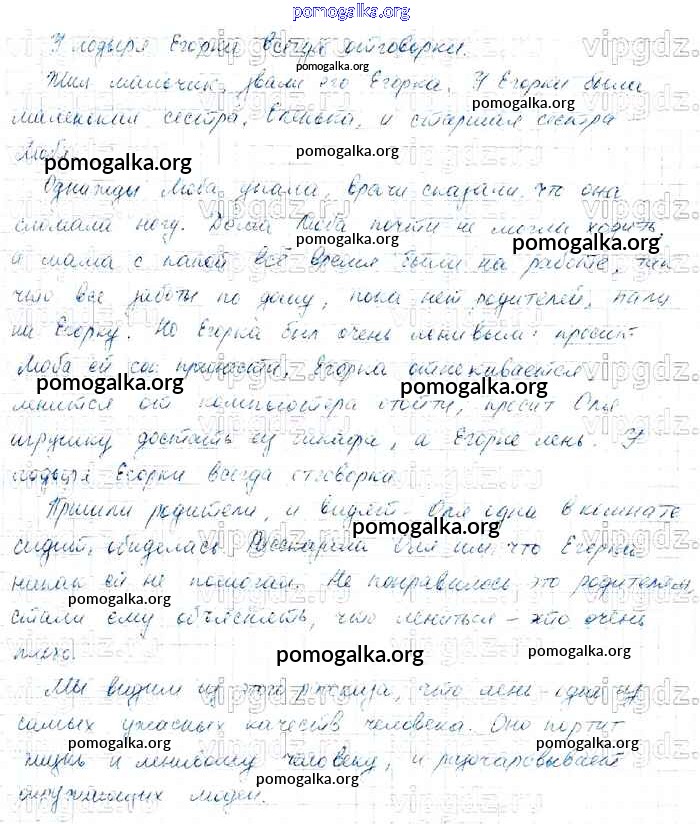 pomogalka.org
У лодыря Егорки всегда отговорки.
Жил мальчик, звали его Егорка. У Егорки были
маленькая сестра, и старшая сестра
Люба
Однажды Люба упала, врачи сказали, что она
сломала ногу. Долго Люба почти не могла ходить,
а мама с папой всё время были на работе, так
что все заботы по дому, пока нет родителей, пали
на Егорку. Но Егорка был очень ленивым: просит
Люба ей сок принести, Егорка отнекивается,
ленится от компьютера отойти, просит Оля
игрушку достать ей с шкафа, а Егорке лень. У
лодыря Егорки всегда отговорка.
Пришли родители, и видят - Оля одна в комнате
сидит, обиделась. Рассказала Оля им, что Егорка
никак ей не помогал. Не понравилось это родителям,
стали ему объяснять, что лениться - это очень
плохо.
Мы видим из этого рассказа, что лень - одна из
самых ужасных качеств человека. Оно портит
жизнь и ленивому человеку, и разочаровывает
окружающих людей.